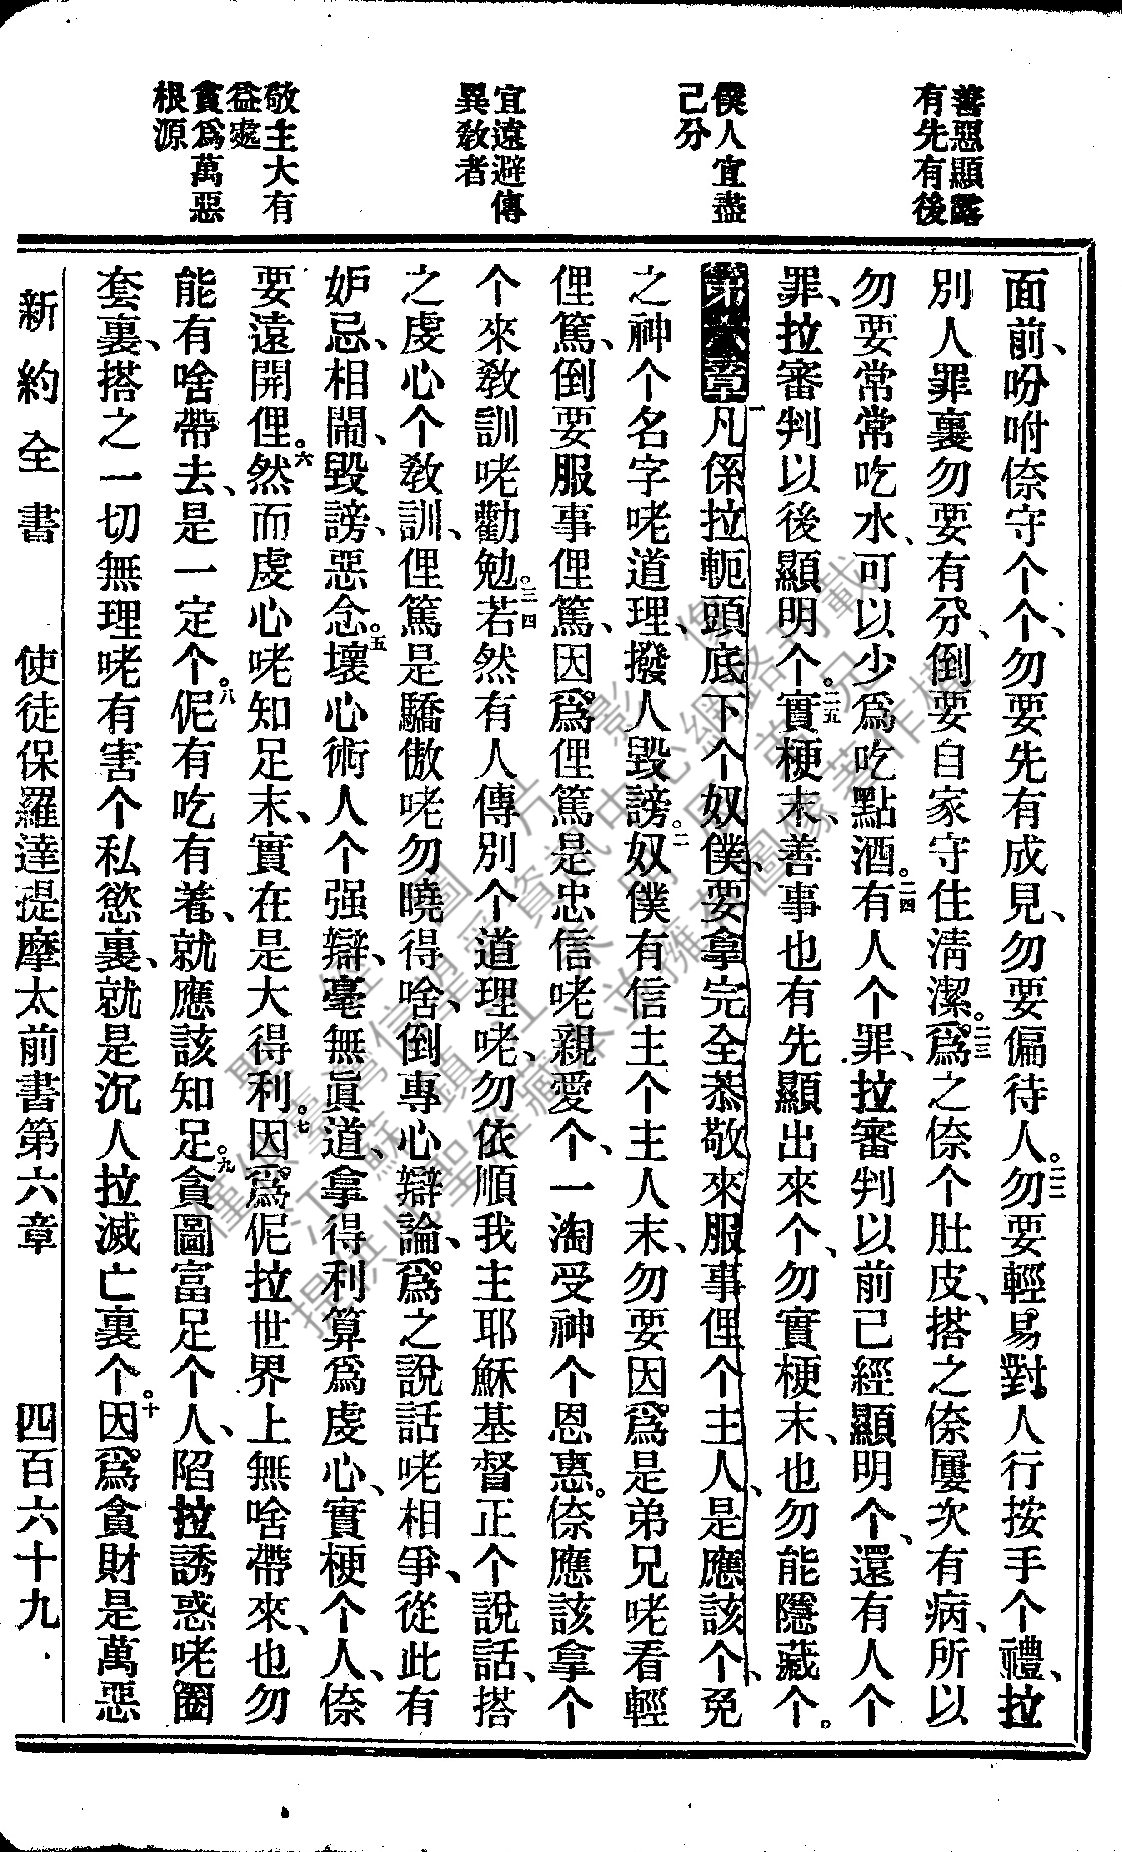 善惡顯露
有先有後
僕人宜盡
己分
宜遠避傳
異教者
敬主大有
益處
貪爲萬惡
根源
面前、吩咐倷守个个、勿要先有成見、勿要偏待人。二二勿要輕易對人行按手个禮、拉
別人罪裏勿要有分、倒要自家守住淸潔。二三爲之倷个肚皮、搭之倷屢次有病、所以
勿要常常吃水、可以少爲吃點酒。二四有人个罪、拉審判以前已經顯明个、還有人个
罪、拉審判以後顯明个。二五實梗末、善事也有先顯出來个、勿實梗末、也勿能隱藏个。
第六章一凡係拉軛頭底下个奴僕、要拿完全恭敬來服事俚个主人、是應該个、免
之神个名字咾道理、撥人毀謗。二奴僕有信主个主人末、勿要因爲是弟兄咾看輕
俚篤、倒要服事俚篤、因爲俚篤是忠信咾親愛个、一淘受神个恩惠。倷應該拿个
个來敎訓咾勸勉。三四若然有人傳別个道理咾、勿依順我主耶穌基督正个說話、搭
之虔心个敎訓、俚篤是驕傲咾勿曉得啥、倒專心辯論、爲之說話咾相爭、從此有
妒忌、相鬧、毀謗、惡念。五壞心術人个强辯、毫無眞道、拿得利算爲虔心、實梗个人、倷
要遠開俚。六然而虔心咾知足末、實在是大得利。七因爲伲拉世界上無啥帶來、也勿
能有啥帶去、是一定个。八伲有吃有着、就應該知足。九貪圖富足个人、陷拉誘惑咾圈
套裏、搭之一切無理咾有害个私慾裏、就是沉人拉滅亡裏个。十因爲貪財是萬惡
新約全書　使徒保羅達提摩太前書第六章　四百六十九
僅供臺灣信望愛資訊中心網路刊載
提供此聖經藏本並擁有圖像著作權